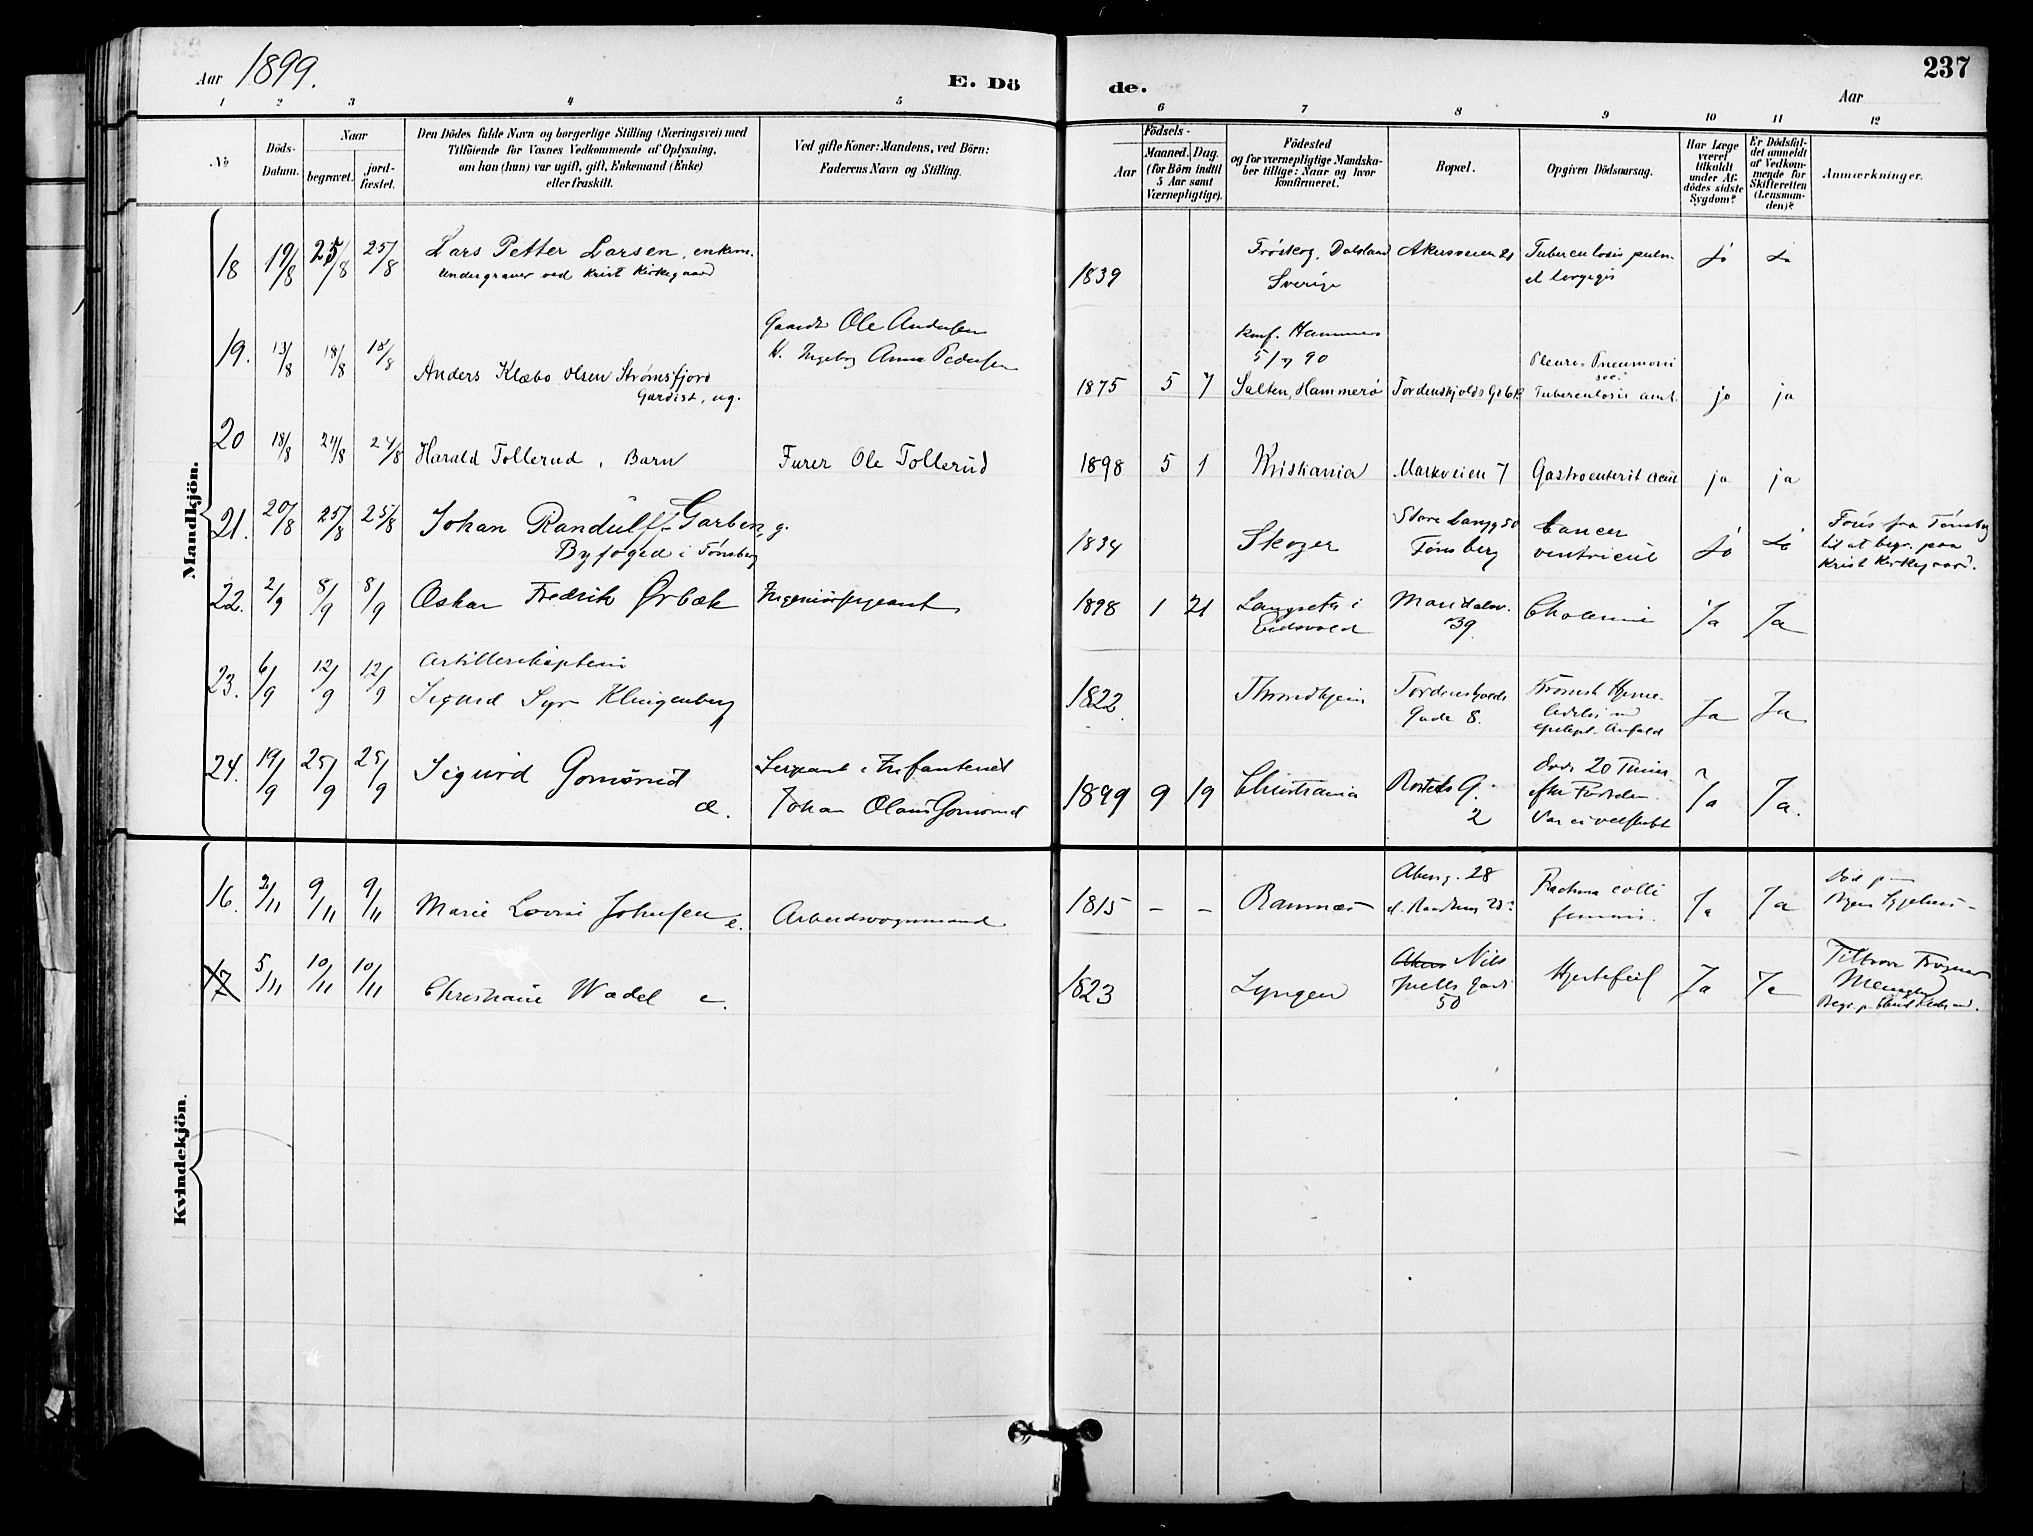 Aar 1899.
E. Dö
de.
237
Aar
1 2 3 4 5 6 7 8 9 10 11 12
No
Döds-
Datum.
Naar
begravet.
jord-
fæstet.
Den Dödes fulde Navn og borgerlige Stilling (Næringsvei) med
Tilföiende for Voxnes Vedkommende af Oplysning,
om han (hun) var ugift, gift, Enkemand (Enke)
eller fraskilt.
Ved gifte Koner: Mandens, ved Börn:
Faderens Navn og Stilling.
Födsels-
Aar
Maaned. Dag.
(for Börn indtil
5 Aar samt
Værnepligtige).
Födested
og for værnepligtige Mandska-
ber tillige: Naar og hvor
konfirmeret.
Bopæl.
Opgiven Dödsaarsag.
Har Læge
været
tilkaldt
under Af-
dödes sidste
Sygdom?
Er Dödsfal-
det anmeldt
af Vedkom-
mende for
Skifteretten
(Lensman-
den)?
Anmærkninger.
Mandkjön.
18 19/8 25/8 25/8 Lars Petter Larsen, enkem.
undergraver ved Krist Kirkegaard
1839 Fröskog, Dalsland
Sverige
Akersveien 21 Tuberculosis pulm.
et laryngis
Ja Ja
19. 13/8 18/8 18/8 Anders Klæbo Olsen Strømsfjord
Gardist, ug.
Gaardb Ole Andersen
H. Ingeborg Anna Pedersen
1875 5 7 konf. Hammerø
5/7 90
Salten, Hammerø
Tordenskjolds Gd 6
Pleuro-Pneumoni
Tuberculosis
ja ja
20 18/8 24/8 24/8 Harald Tollerud, Barn
Furer Ole Tollerud
1898 5 1 Kristiania Markveien 7 Gastroenterit acut ja ja
21. 20/8 25/8 25/8 Johan Randulff Garben, g.
Byfoged i Tønsberg
1834 Skoger Store Langg 50
Tønsberg
Cancer
ventriculi
Ja Ja
Förs fra Tönsberg
til at begr. paa
Krist Kirkegaard.
22. 2/9 8/9 8/9 Oskar Fredrik Ørbæk Ingeniørsergeant
1898 1 21 Langseth i
Eidsvold
Maridalsv.
39. Ja Ja
23. 6/9 12/9 12/9 Artillerikaptein
Sigurd Syr Klingenberg
1822. Throndhjem Tordenskjolds
Gade 8.
Kronisk Hjerne
epilept. Anfald
Ja Ja
24. 19/9 25/9 25/9 Sigurd Gomsrud
Sergeant i Infanteriet
Johan Olaus Gomsrud
1899 9 19 Christiania Rosteds G.
2
Døde 20 Timer
efter Fødselen.
Var ei velskabt
Ja Ja.
Kvindekjön.
16. 2/11 9/11 9/11 Marie Lovise Johnsen e. Arbeidsvognmand
1815 - - Ramnæs Akersg. 28
Fractura colli
femoris.
Ja Ja
Död
17 5/11 10/11 10/11 Christiane Wadel e.
1823 Lyngen Akers Nils
Juells Gade
50
Hjertefeil Ja Ja
Tilhører Frogner
Menighed